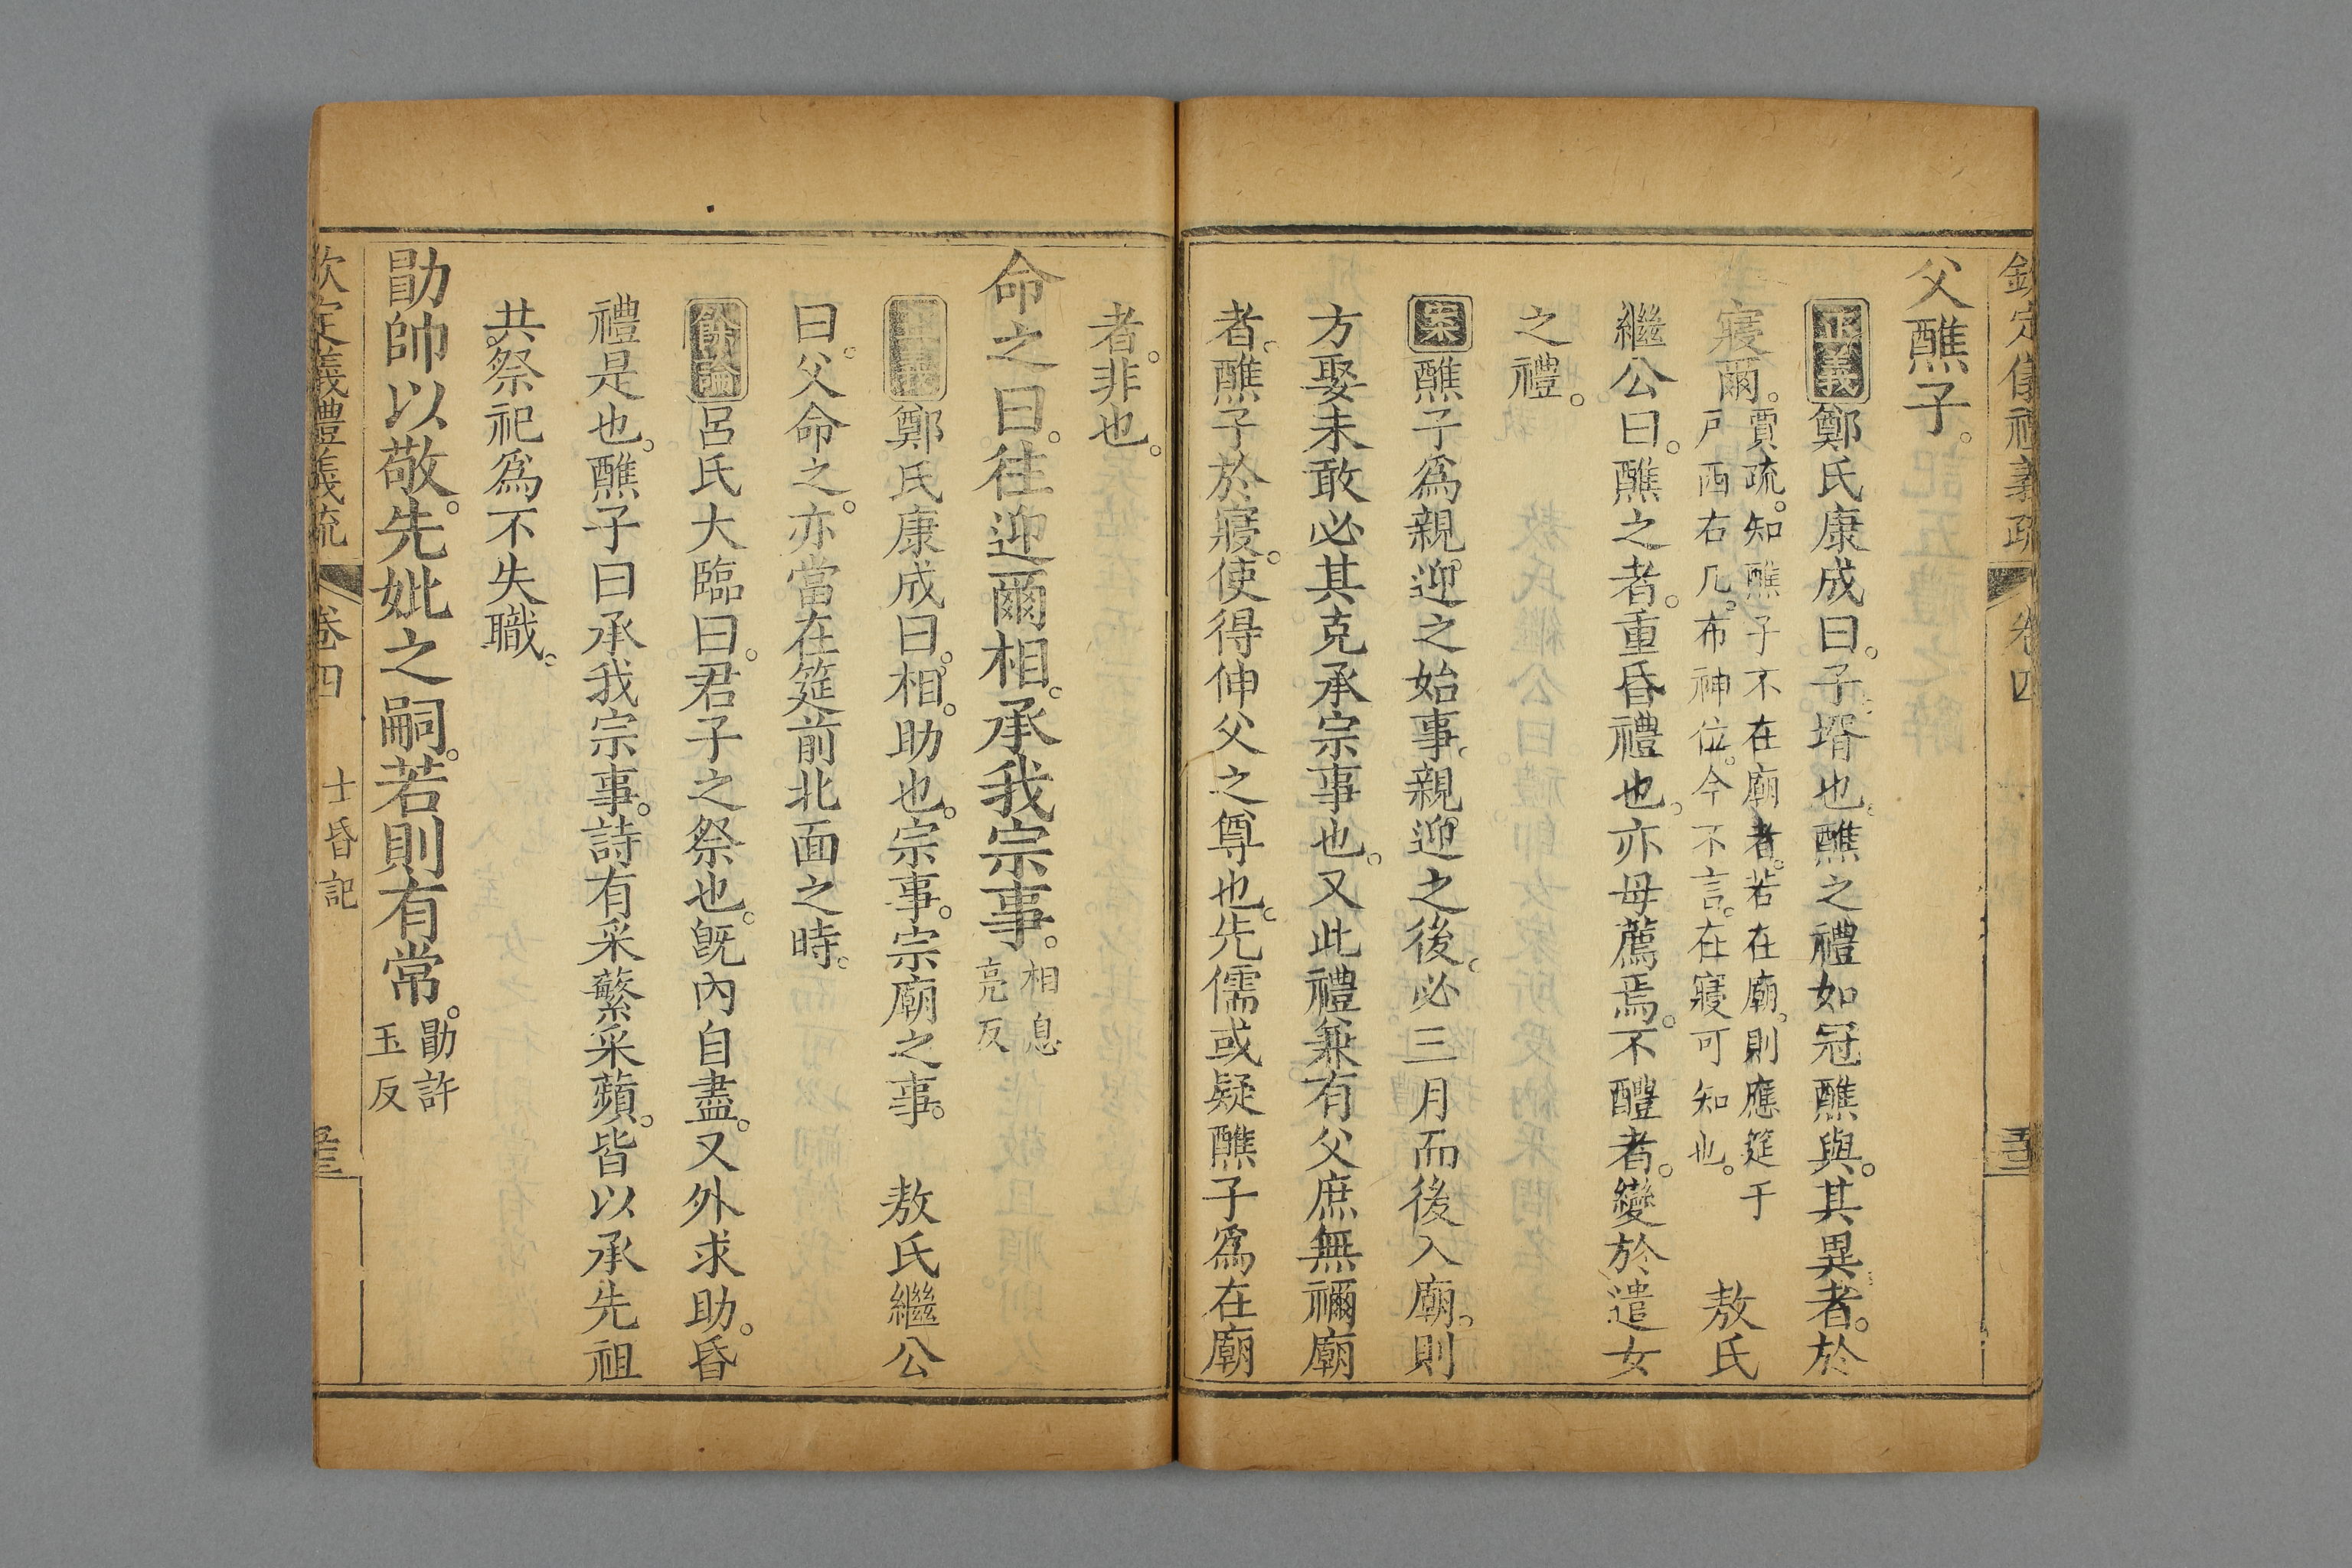 欽定儀禮義疏 卷四
父醮子。
正義鄭氏康成曰。子。壻也。醮之禮如冠醮與。其異者。於
寢爾。賈疏。知醮子不在廟者。若在廟。則應筵于
戶西右几。布神位。今不言。在寢可知也。 敖氏
繼公曰。醮之者。重昏禮也。亦毋薦焉。不醴者。變於遣女
之禮。
案醮子爲親迎之始事。親迎之後。必三月而後入廟。則
方娶未敢必其克承宗事也。又此禮兼有父庶無禰廟
者。醮子於寢。使得伸父之尊也。先儒或疑醮子爲在廟
者。非也。
命之曰。往迎爾相。承我宗事。相息
亮反
正義鄭氏康成曰。相。助也。宗事。宗廟之事。 敖氏繼公
曰。父命之。亦當在筵前北面之時。
餘論呂氏大臨曰。君子之祭也。旣內自盡。又外求助。昏
禮是也。醮子曰承我宗事。詩有采蘩采蘋。皆以承先祖
共祭祀爲不失職。
勖帥以敬。先妣之嗣。若則有常。勖許
玉反
欽定儀禮義疏 卷四 士昏記